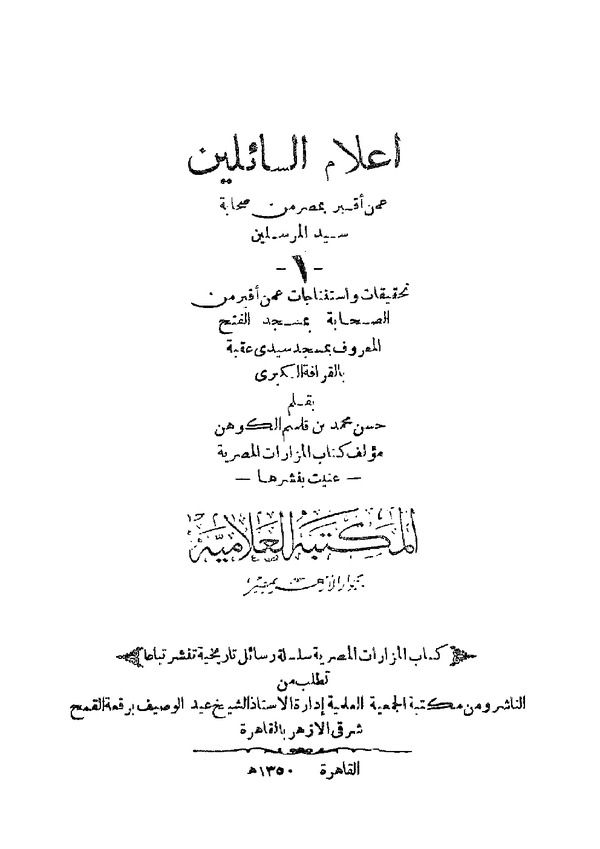 اعلام السائلين
عمن أقبر بمصر من صحابة
سيد المرسلين
- ١ -
تحقيقات واستنتاجات عمن أقبر من
الصحابة بمسجد الفتح
المعروف بمسجد سيدى عقبة
بالقرافة الكبرى
بقلم
حسن محمد بن قاسم الكوهن
مؤلف كتاب المزارات المصرية
— عنيت بنشرها —
المكتبة العلامية
بجوار الأزهر بمصر
كتاب المزارات المصرية سلسلة رسائل تاريخية تنشر تباعا
تطلب من
الناشر ومن مكتبة الجمعية العلمية إدارة الاستاذ الشيخ عبد الوصيف برقعة القمح
شرقى الازهر بالقاهرة
القاهرة ١٣٥٠ هـ